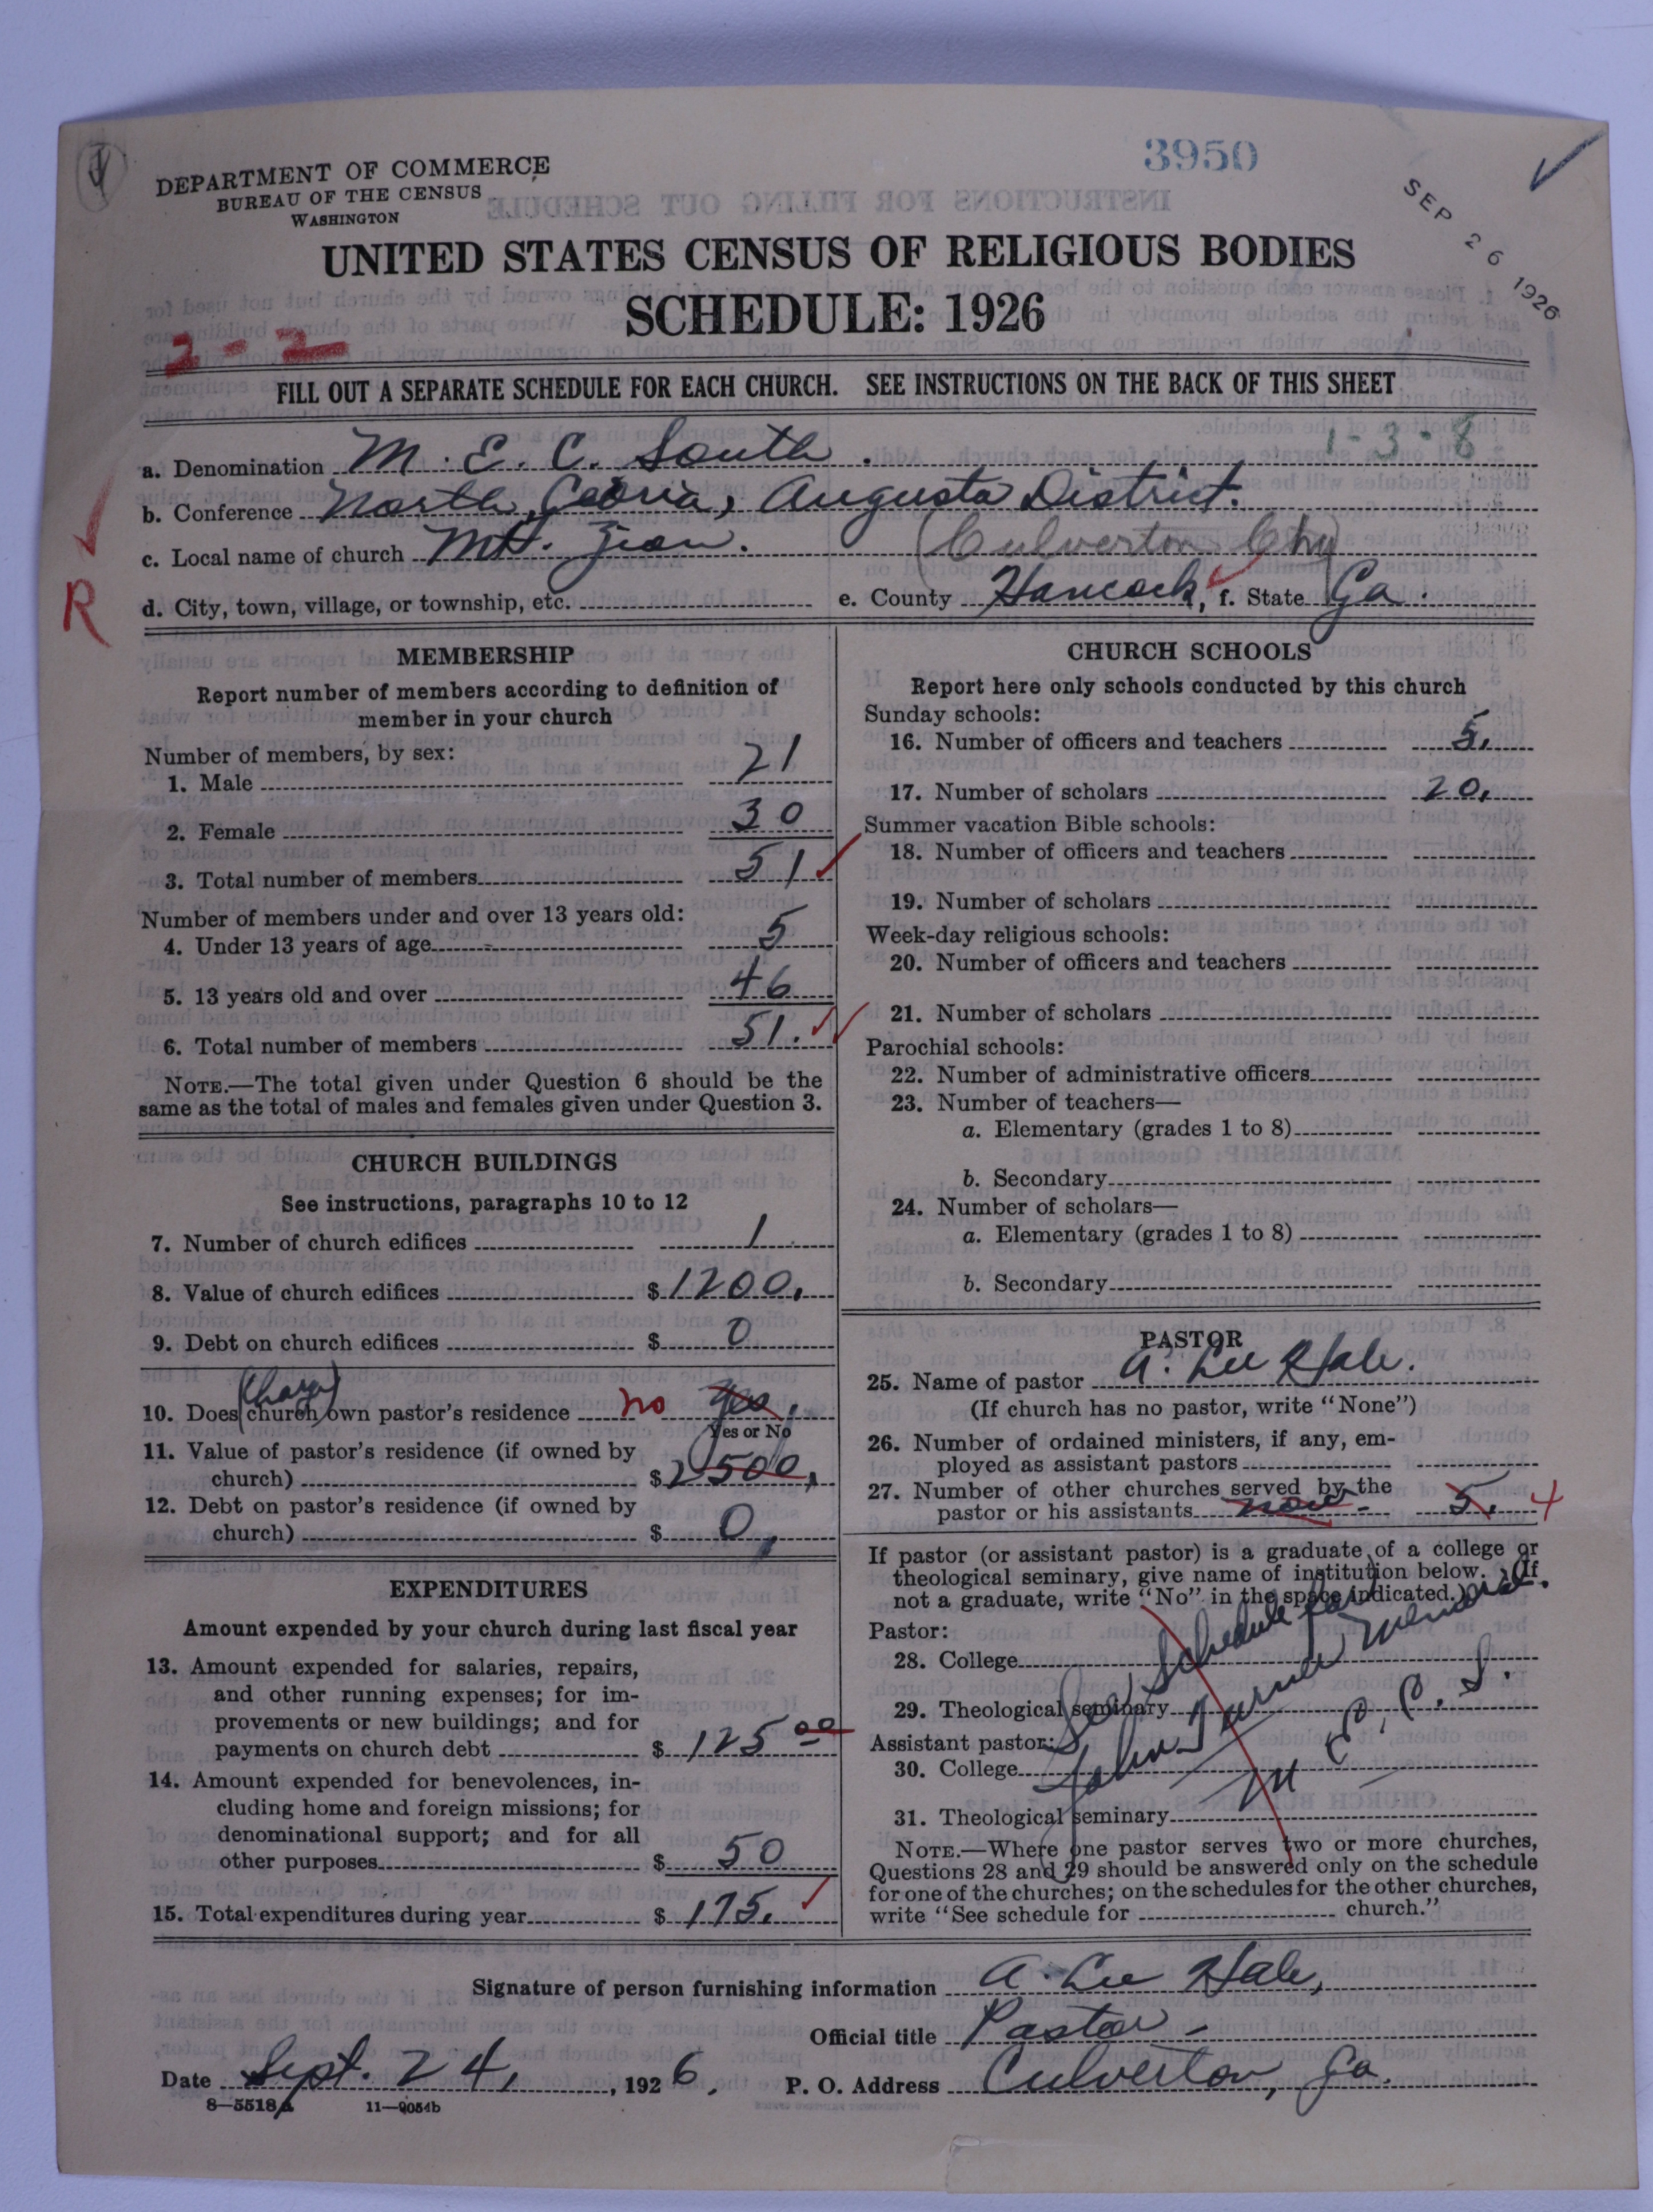 3950
DEPARTMENT OF COMMERCE
BUREAU OF THE CENSUS
WASHINGTON
SEP 26 1926
UNITED STATES CENSUS OF RELIGIOUS BODIES
SCHEDULE: 1926
2-2
FILL OUT A SEPARATE SCHEDULE FOR EACH CHURCH. SEE INSTRUCTIONS ON THE BACK OF THIS SHEET
1-3-8
a. Denomination M. E. C. South.
b. Conference North Georia, Augusta District.
c. Local name of church Mt. Zion. (Culverton Chg)
R
d. City, town, village, or township, etc. e. County Hancock, f. State Ga.
MEMBERSHIP
Report number of members according to definition of
member in your church
Number of members, by sex:
1. Male 21
2. Female 30
3. Total number of members 51
Number of members under and over 13 years old:
4. Under 13 years of age 5
5. 13 years old and over 46
6. Total number of members 51.
NOTE.—The total given under Question 6 should be the
same as the total of males and females given under Question 3.
CHURCH BUILDINGS
See instructions, paragraphs 10 to 12
7. Number of church edifices 1
8. Value of church edifices $1200.
9. Debt on church edifices $ 0
(Charge)
10. Does (church) own pastor's residence no yes.
Yes or No
11. Value of pastor's residence (if owned by
church) $2500.
12. Debt on pastor's residence (if owned by
church) $ 0
EXPENDITURES
Amount expended by your church during last fiscal year
13. Amount expended for salaries, repairs,
and other running expenses; for im-
provements or new buildings; and for
payments on church debt $ 125 00
14. Amount expended for benevolences, in-
cluding home and foreign missions; for
denominational support; and for all
other purposes $ 50
15. Total expenditures during year $ 175.
CHURCH SCHOOLS
Report here only schools conducted by this church
Sunday schools:
16. Number of officers and teachers 5.
17. Number of scholars 20.
Summer vacation Bible schools:
18. Number of officers and teachers
19. Number of scholars
Week-day religious schools:
20. Number of officers and teachers
21. Number of scholars
Parochial schools:
22. Number of administrative officers
23. Number of teachers—
a. Elementary (grades 1 to 8)
b. Secondary
24. Number of scholars—
a. Elementary (grades 1 to 8)
b. Secondary
PASTOR
25. Name of pastor A. Lee Hale.
(If church has no pastor, write "None")
26. Number of ordained ministers, if any, em-
ployed as assistant pastors
27. Number of other churches served by the
pastor or his assistants 5. 4
If pastor (or assistant pastor) is a graduate of a college or
theological seminary, give name of institution below. (If
not a graduate, write "No" in the space indicated.)
Pastor:
28. College
29. Theological seminary
Assistant pastor:
30. College
31. Theological seminary
See Schedule for
John Turner Memorial.
M. E. C. S.
NOTE.—Where one pastor serves two or more churches,
Questions 28 and 29 should be answered only on the schedule
for one of the churches; on the schedules for the other churches,
write "See schedule for church."
Signature of person furnishing information A. Lee Hale,
Official title Pastor
Date Sept. 24, 1926, P. O. Address Culverton, Ga.
8—5518a 11—9054b